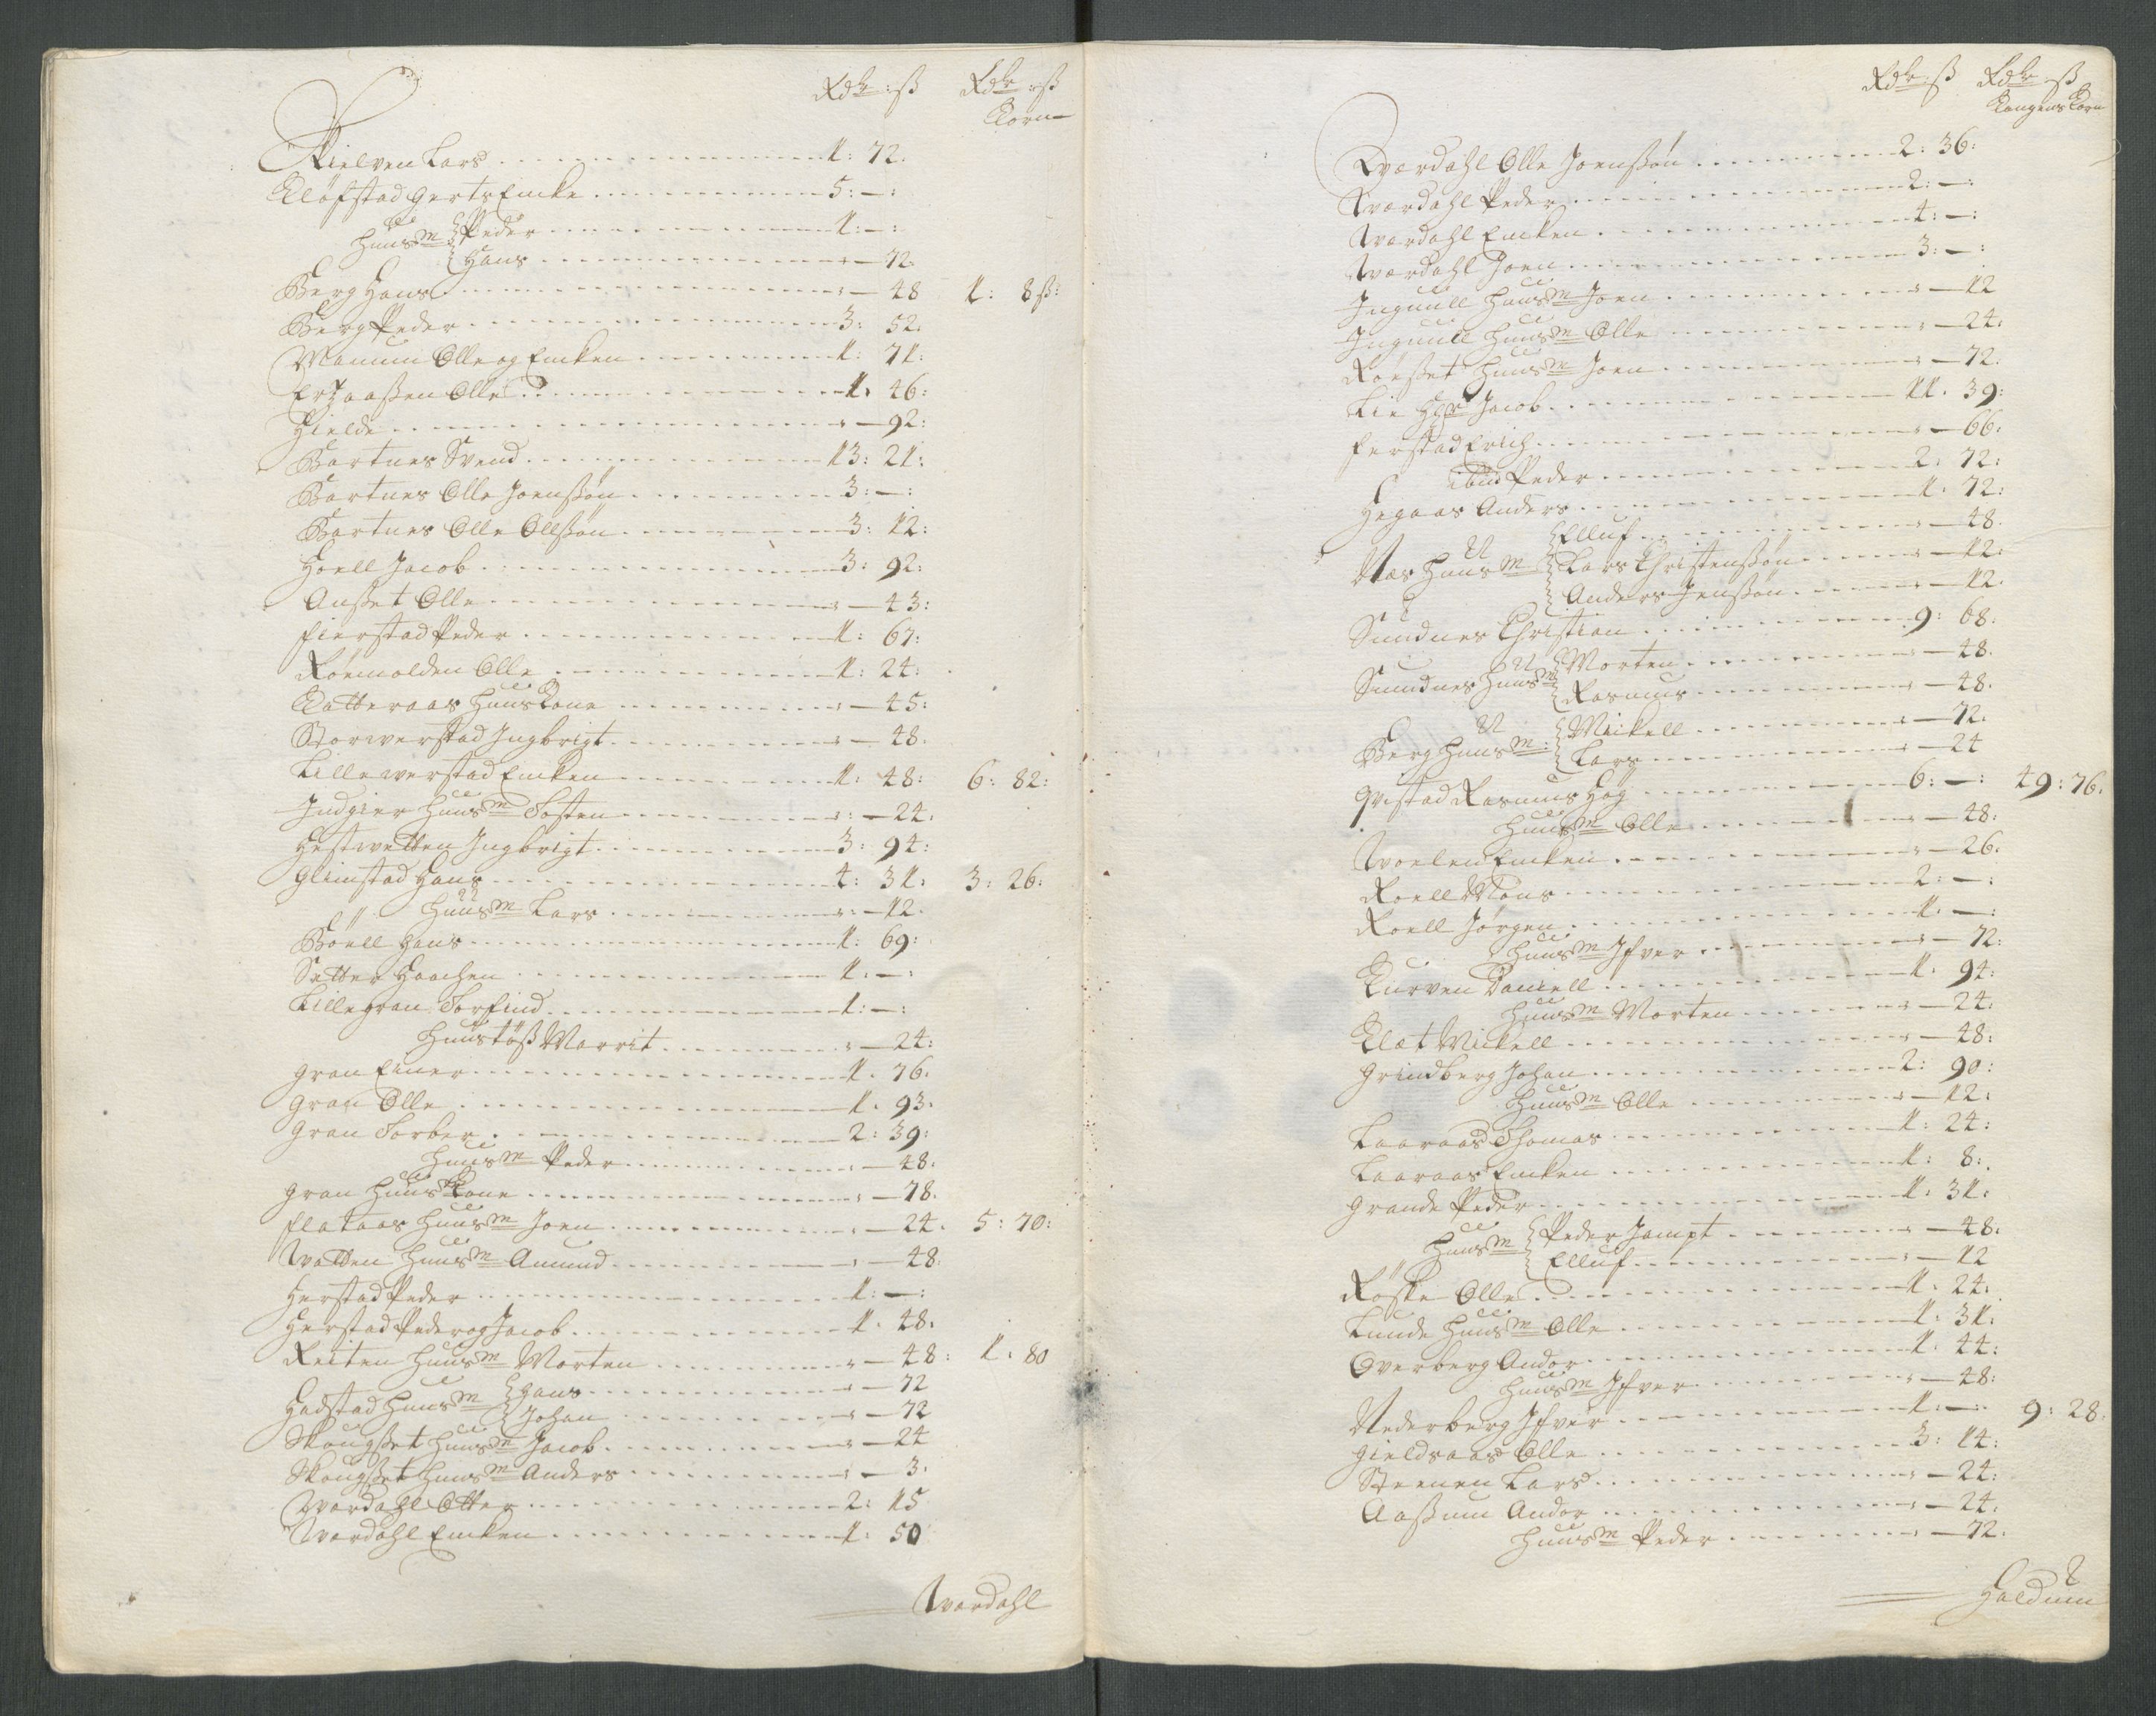 Rdlr : ß Rdlr : ß
Korn
Kielven Lars 1: 72.
Kløfstad Gerts Encke 5: —:
huusm Peder 1: —:
Hans — 72.
Berg Hans — 48 1: 8 ß:
Berg Peder 3: 52.
Mamun Olle og Encken 1: 71:
Olle 1: 46:
Hielde — 92:
Bartnes Svend 13: 21:
Bartnes Olle Joenßøn 3: —:
Bartnes Olle Ollßøn 3: 12:
Hoell Jacob 3: 92:
Anßet Olle — 43:
Fierstad Peder 1: 67:
Røemolden Olle 1: 24:
Katteraas huuskone — 45:
Storwerstad Ingbrigt — 48.
Lillewerstad Encken 1: 48: 6: 82:
Indgier huusm Tosten — 24:
Hestwetten Ingbrigt 3: 94:
Glimstad Hans 4: 31: 3: 26:
huusm Lars — 12.
Bøell Hans 1: 69:
Setter Haachen 1: —:
Lillegran Torfind 1: —:
huustøß Marrit — 24:
Gran Einer 1. 76.
Gran Olle 1. 93.
Gran Torber 2: 39:
huusm Peder — 48.
Gran huuskone — 78.
Flataas huusm Joen — 24. 5: 70:
Watten huusm Amund — 48.
Herstad Peder 1: —:
Herstad Peder og Jacob 1. 48.
Reiten huusm Morten — 48: 1: 80
Hadstad huusm Hans — 72
Johan — 72
Skougßet huusm Jacob — 24
Skougßet huusm Anders — 3.
Wardahl Otter 2: 15
Wardahl Encken 1: 50
Wardahl
Rdlr : ß Rdlr : ß
Kongens Korn
Wærdahl Olle Joenßøn 2: 36:
Wærdahl Peder 2: —:
Wærdahl Encken 4: —:
Wærdahl Joen 3: —:
Inguull huusm Joen — 12
Inguull huusm Olle — 24:
Roeßet huusm Joen — 72.
Lie Hgr Jacob 11. 39:
Ferstad Erich — 66:
ibid Peder 2: 72:
Hegaas Anders 1. 72:
Elluf — 48.
Næs huusm Lars Christenßøn — 12:
Anders Jenßøn — 12.
Sundnes Christian 9: 68:
Sundnes huusm Morten — 48.
Rasmus — 48.
Berg huusm: Mickell — 72.
Lars — 24
Qvistad Rasmus Høg 6: —: 49: 76.
huusm Olle — 48:
Woelen Encken — 26.
Roell Mons 2: —:
Roell Jørgen 1. —:
huusm Ifver — 72:
Kurven Daniell 1. 94:
huusm Morten — 24:
Klæt Mickell — 48:
Grindberg Johan 2: 90:
huusm Olle — 12:
Laaraas Thomas 1: 24:
Laaraas Encken 1. 8:
Grande Peder 1: 31:
huusm Peder Jampt — 48.
Elluf — 12
Røske Olle 1. 24:
Lunde huusm Olle 1. 31:
Overberg Andor 1. 44:
huusm Ifver — 48:
Nederberg Ifver 1: —: 9: 28:
Gieldsaas Olle 3: 14:
Steenen Lars — 24:
Aaßum Andor — 24.
huusm Peder — 72.
Haldum